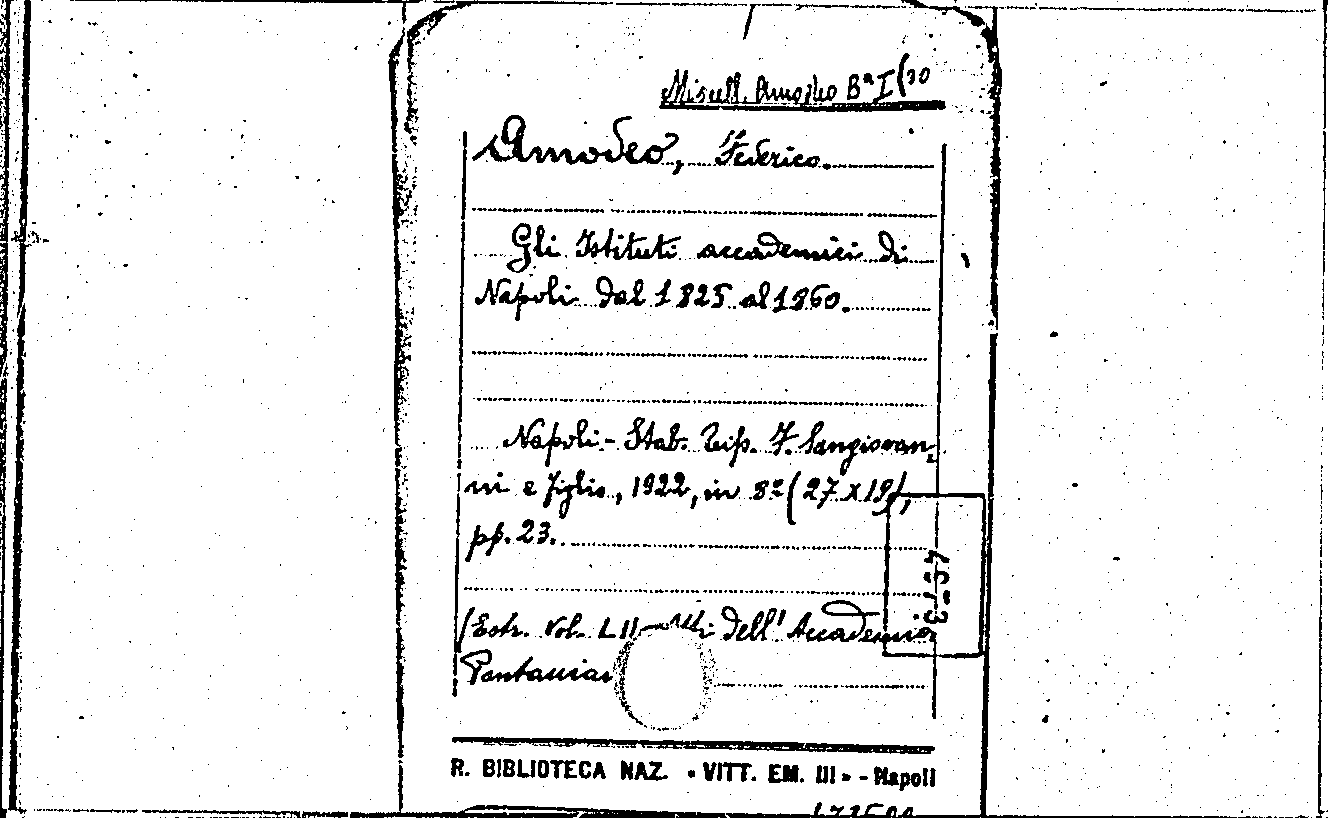 Miscell. Amodeo Bª I (30
Amodeo, Federico.
Gli Istituti accademici di
Napoli dal 1825 al 1860.
Napoli - Stab. Tip. F. Sangiovan,
ni e figlio, 1922, in 8º (27 x 19),
pp. 23.
(Estr. vol. LII Atti dell' Accademia
Pontanian
R. BIBLIOTECA NAZ. « VITT. EM. III » - Napoli